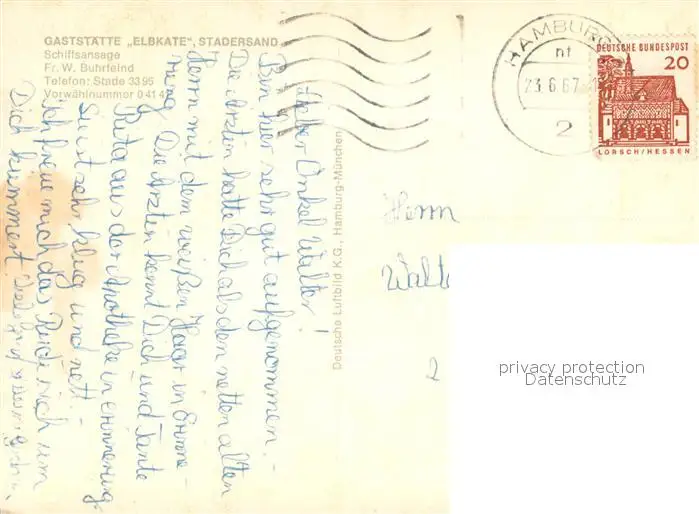 GASTSTÄTTE „ELBKATE“, STADERSAND
Schiffsansage
Fr. W. Buhrfeind
Telefon: Stade 33 95
Vorwahlnummer 0 41 41
HAMBURG
nt
23.6.67
2
DEUTSCHE BUNDESPOST
20
LORSCH/HESSEN
Lieber Onkel Walter!
Bin hier sehr gut aufgenommen.-
Die Ärztin hatte Dich als den netten alten
Herrn mit dem weißen Haar in Erinne-
rung. Die Ärztin kennt Dich und Tante
Reta aus der Apotheke in Erinnerung
Sie ist sehr klug und nett.-
Ich freue mich das sich um
Dich kümmert.
Deutsche Luftbild K.G., Hamburg-München
Herrn
Walt
2
privacy protection
Datenschutz